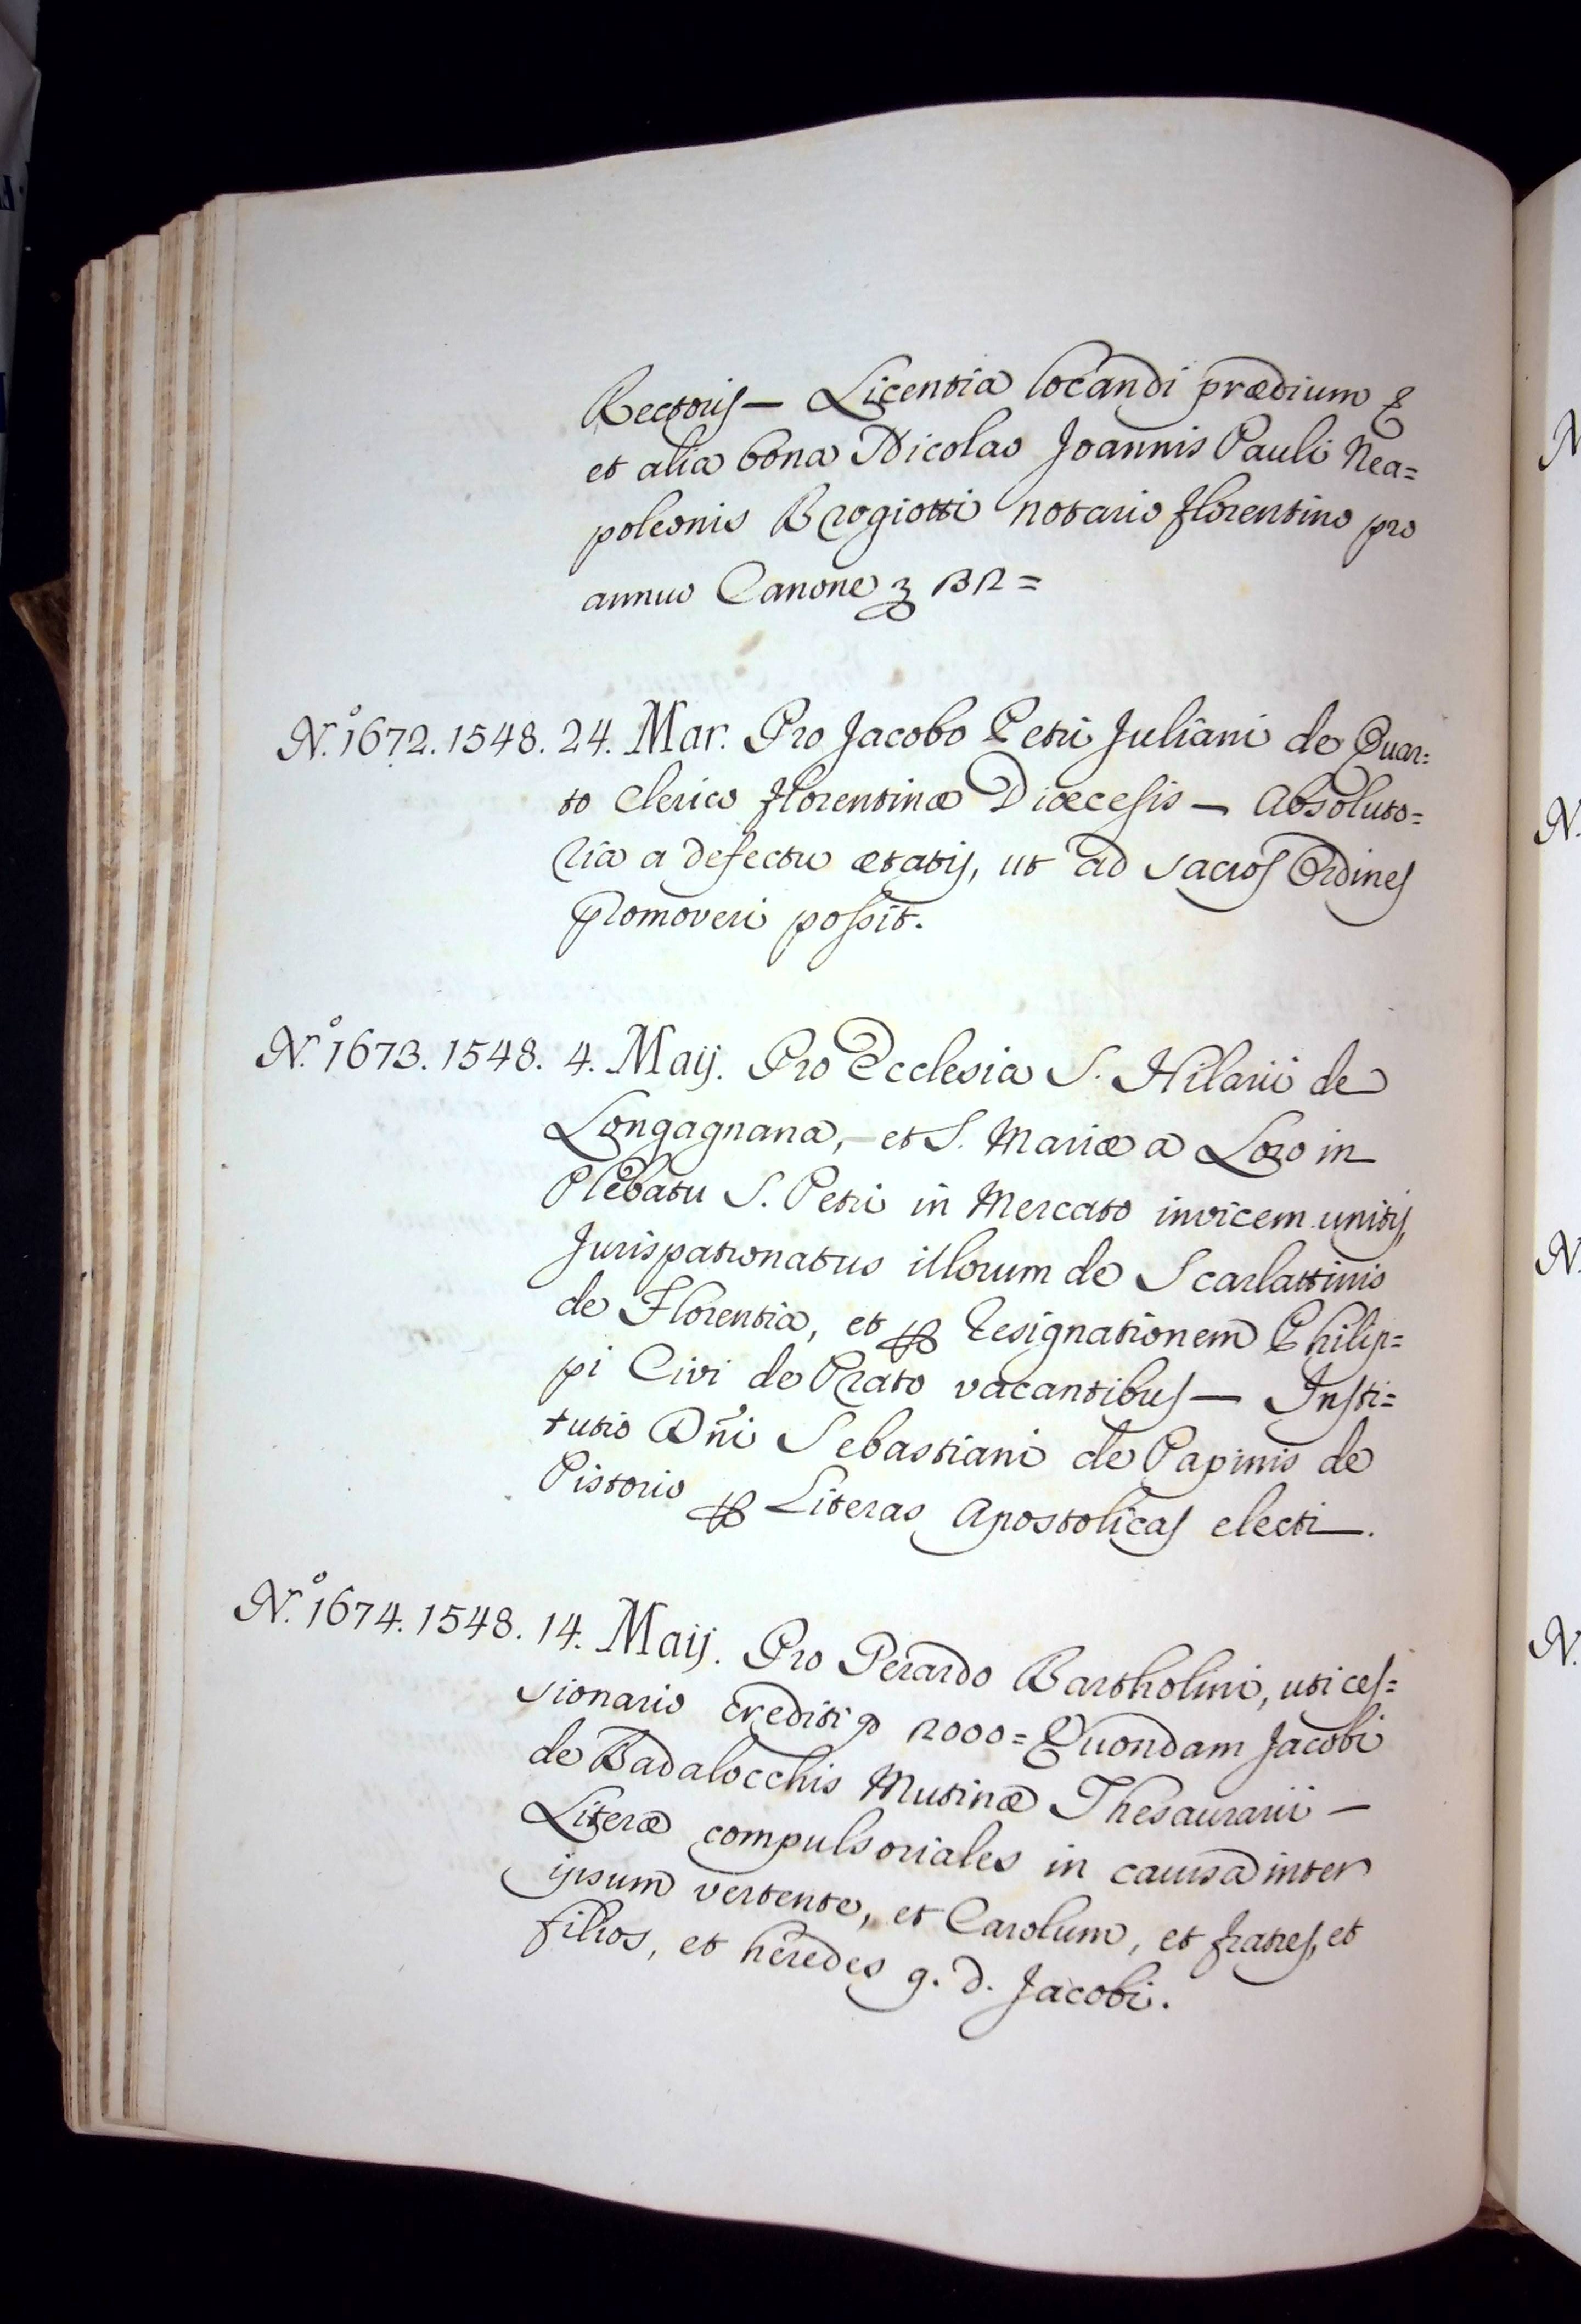 Rectoris — Licentia locandi prædium &
et alia bona Nicolao Joannis Pauli Nea=
poleonis Brogiotti notario florentino pro
annuo Canone 32=
N.º 1672. 1548. 24. Mar. Pro Jacobo Petri Juliani de Quar=
to Clerico florentinæ Diœcesis — Absoluto=
ria a defectu ætatis, ut ad sacros Ordines
promoveri possit.
N.º 1673. 1548. 4. Maij. Pro Ecclesia S. Hilarii de
Longagnana, et S. Mariæ a Loro in
Plebatu S. Petri in Mercato invicem unitis,
Jurispatronatus illorum de Scarlattinis
de Florentia, et per resignationem Philip=
pi Civi de Prato vacantibus — Insti=
tutio Dñi Sebastiani de Papinis de
Pistorio per Literas Apostolicas electi —.
N.º 1674. 1548. 14. Maij. Pro Perardo Bartholini, uti ces=
sionario Crediti 2000= Quondam Jacobi
de Badalocchis Mutinæ Thesaurarii —
Literæ compulsoriales in causa inter
ipsum vertente, et Carolum, et fratres, et
filios, et heredes q. d. Jacobi.
N
N.
N.
N.